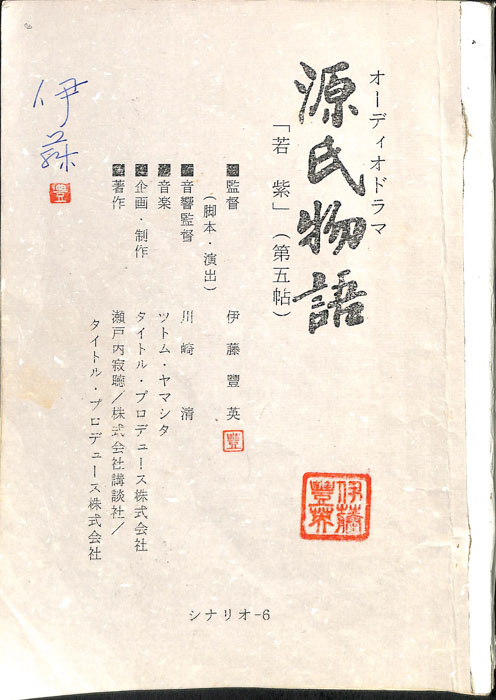 オーディオドラマ
源氏物語
「若 紫」(第五帖)
■監督 伊藤豐英 豐
(脚本・演出)
■音響監督 川崎 清
■音楽 ツトム・ヤマシタ
■企画・制作 タイトル・プロデュース株式会社
■著作 瀬戸内寂聴/株式会社講談社/
タイトル・プロデュース株式会社
伊藤
豐
伊藤豐英
シナリオ-6